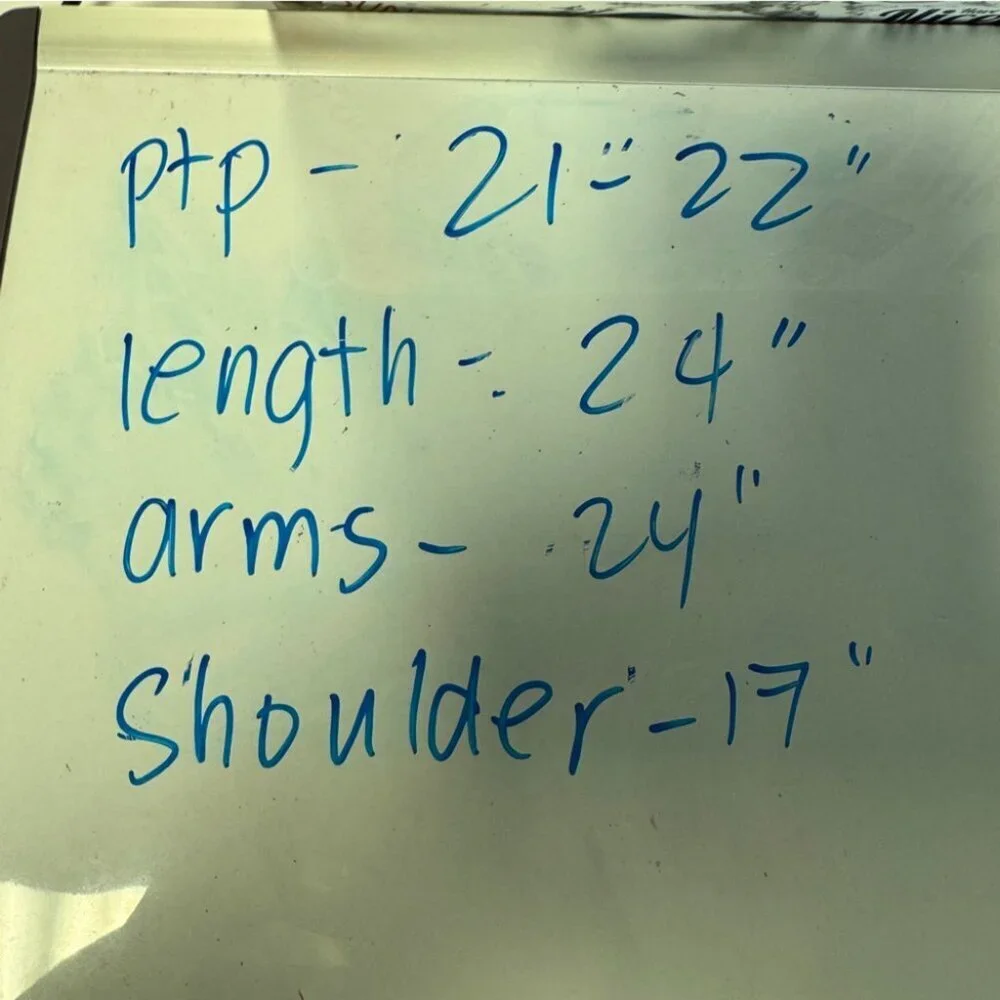 ptp - 21"- 22"
length - 24"
arms - 24"
Shoulder - 17"